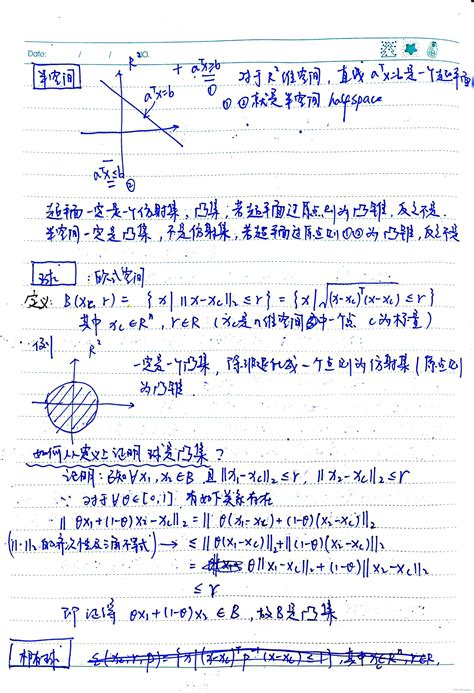 Date: / / NO.
半空间
R²
+ aᵀx≥b
①
aᵀx=b
对于R²维空间，直线aᵀx=b是一个超平面
①②就是半空间 halfspace
aᵀx≤b
②
超平面一定是一个仿射集，凸集，若超平面过原点则为凸锥，反之不是.
半空间一定是凸集，不是仿射集，若超平面过原点则①②为凸锥，反之不是
球：欧式空间
定义：B(xc, r) = {x | ||x-xc||₂ ≤ r} = {x | √(x-xc)ᵀ(x-xc) ≤ r}
其中 xc∈Rⁿ, r∈R (xc是n维空间中一个点 c为标量)
例
R²
一定是一个凸集，除非退化成一个点则为仿射集(原点则
为凸锥
如何从定义上证明球是凸集？
证明：已知∀x₁, x₂∈B 且||x₁-xc||₂≤r, ||x₂-xc||₂≤r
∵ 对于∀θ∈[0,1] 有如下关系存在
||θx₁+(1-θ)x₂-xc||₂ = ||θ(x₁-xc)+(1-θ)(x₂-xc)||₂
(||·||₂的齐次性及三角不等式) → ≤||θ(x₁-xc)||₂+||(1-θ)(x₂-xc)||₂
= θ||x₁-xc||₂+(1-θ)||x₂-xc||₂
≤r
即证得 θx₁+(1-θ)x₂∈B，故B是凸集
ε(xc, r, P) = {x | (x-xc)ᵀP⁻¹(x-xc)≤1}，其中xc∈Rⁿ, r∈R,